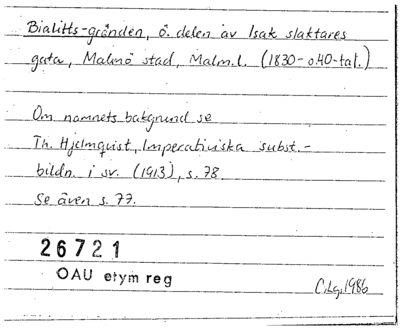 Bialitts-gränden, ö. delen av Isak slaktares
gata, Malmö stad, Malm.l. (1830- o. 40-tal.)
Om namnets bakgrund se
Th. Hjelmqvist, Imperativiska subst.-
bildn. i sv. (1913), s. 78.
Se även s. 77.
26721
OAU etym reg
C.Lg. 1986